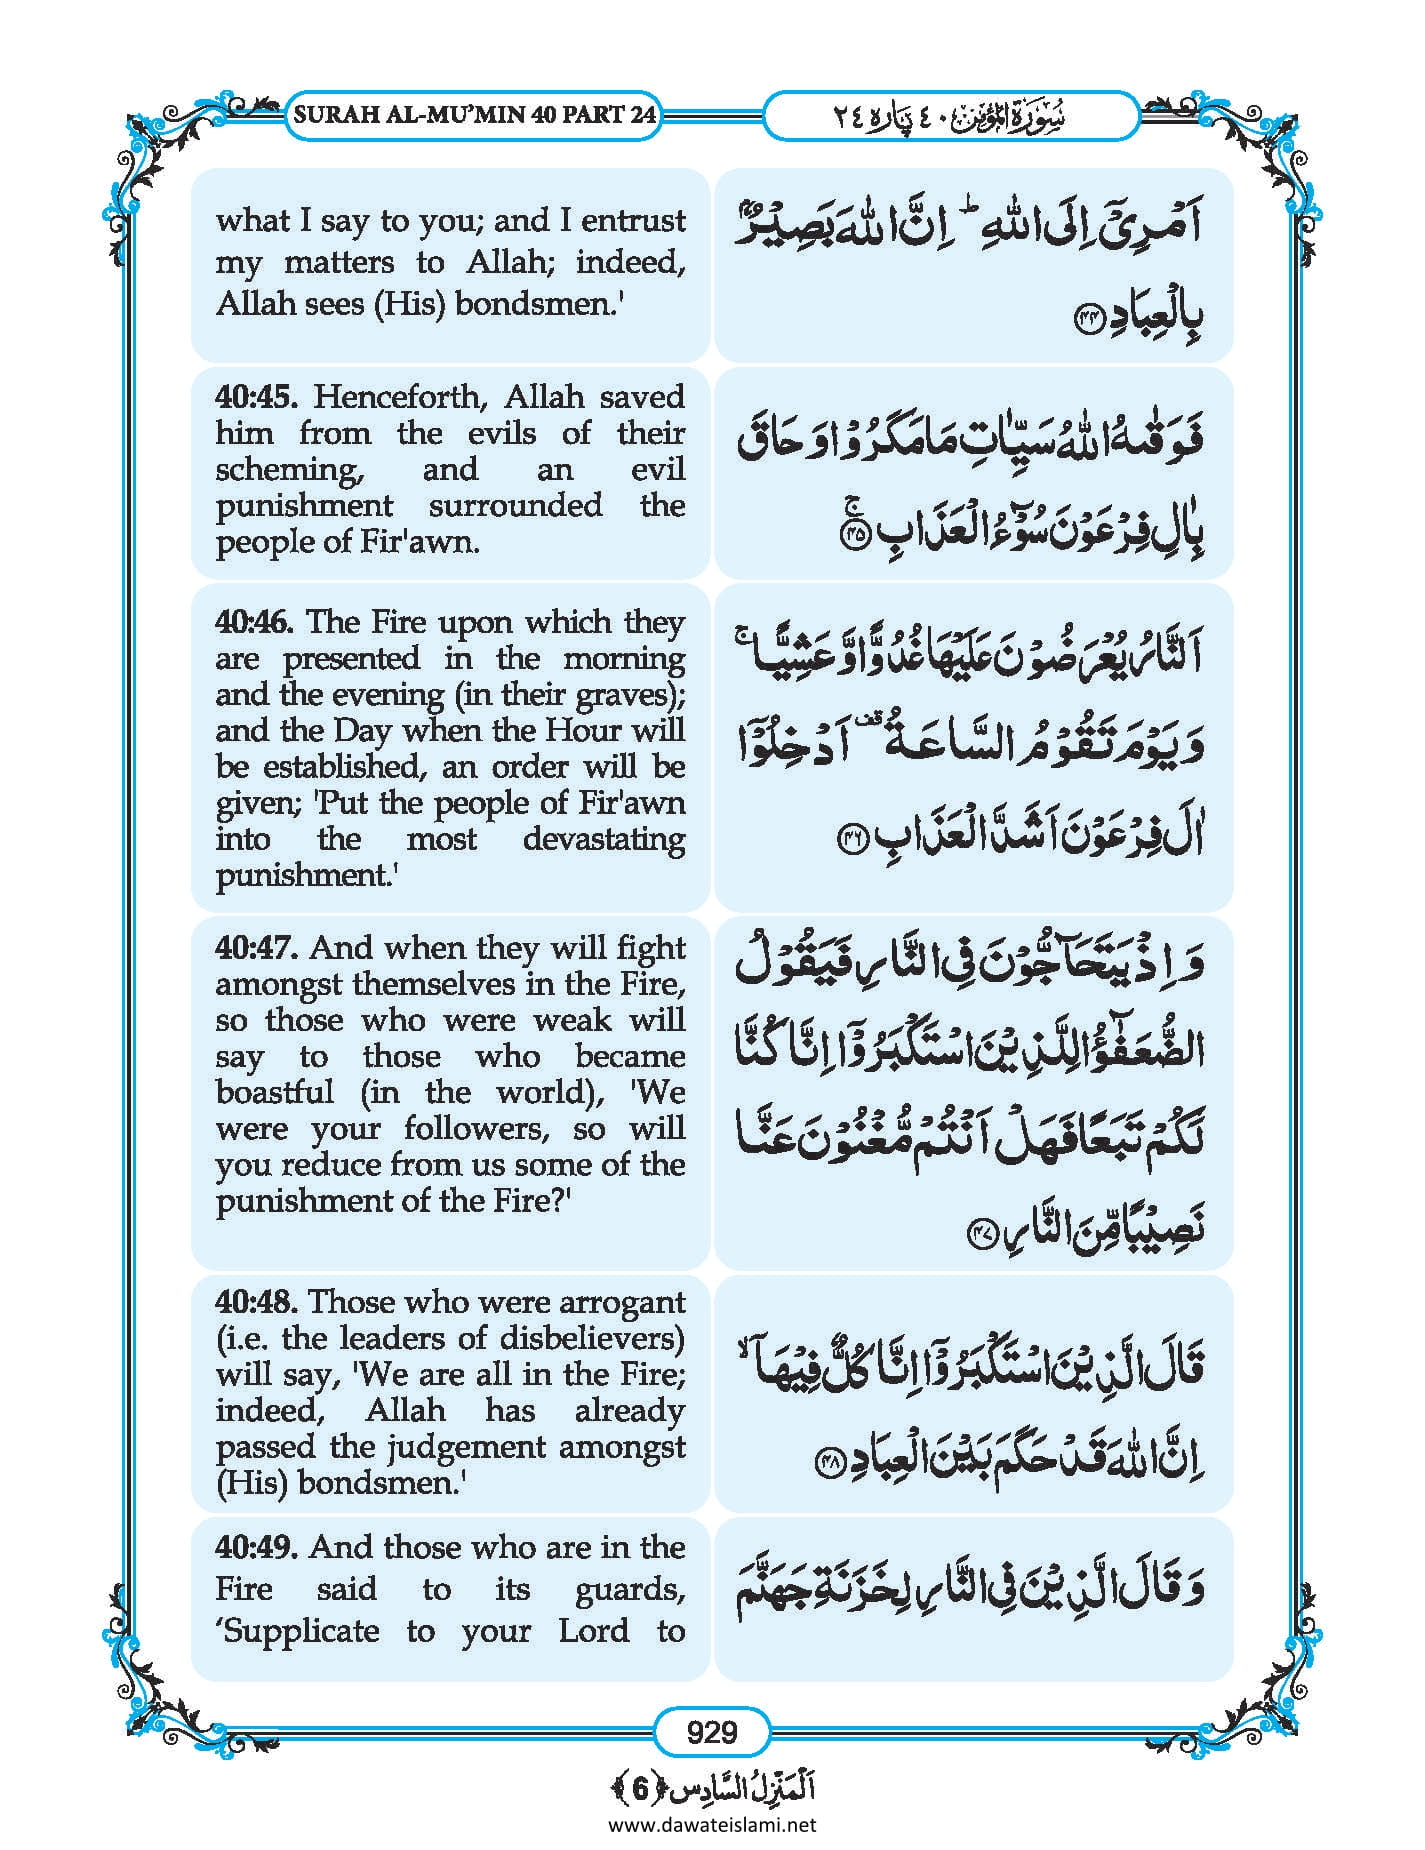 SURAH AL-MU’MIN 40 PART 24
سُوْرَةُ الْمُؤْمِن ٤٠ پَاره ٢٤
what I say to you; and I entrust
my matters to Allah; indeed,
Allah sees (His) bondsmen.'
اَمْرِیْۤ اِلَی اللّٰهِ ؕ اِنَّ اللّٰهَ بَصِیْرٌۢ
بِالْعِبَادِ ﴿۴۴﴾
40:45. Henceforth, Allah saved
him from the evils of their
scheming, and an evil
punishment surrounded the
people of Fir'awn.
فَوَقٰىهُ اللّٰهُ سَیِّاٰتِ مَا مَكَرُوْا وَ حَاقَ
بِاٰلِ فِرْعَوْنَ سُوْٓءُ الْعَذَابِ ﴿۴۵﴾ۚ
40:46. The Fire upon which they
are presented in the morning
and the evening (in their graves);
and the Day when the Hour will
be established, an order will be
given; 'Put the people of Fir'awn
into the most devastating
punishment.'
اَلنَّارُ یُعْرَضُوْنَ عَلَیْهَا غُدُوًّا وَّ عَشِیًّا ۚ
وَ یَوْمَ تَقُوْمُ السَّاعَةُ ۟ اَدْخِلُوْۤا
اٰلَ فِرْعَوْنَ اَشَدَّ الْعَذَابِ ﴿۴۶﴾
40:47. And when they will fight
amongst themselves in the Fire,
so those who were weak will
say to those who became
boastful (in the world), 'We
were your followers, so will
you reduce from us some of the
punishment of the Fire?'
وَ اِذْ یَتَحَآجُّوْنَ فِی النَّارِ فَیَقُوْلُ
الضُّعَفٰٓؤُا لِلَّذِیْنَ اسْتَكْبَرُوْۤا اِنَّا كُنَّا
لَكُمْ تَبَعًا فَهَلْ اَنْتُمْ مُّغْنُوْنَ عَنَّا
نَصِیْبًا مِّنَ النَّارِ ﴿۴۷﴾
40:48. Those who were arrogant
(i.e. the leaders of disbelievers)
will say, 'We are all in the Fire;
indeed, Allah has already
passed the judgement amongst
(His) bondsmen.'
قَالَ الَّذِیْنَ اسْتَكْبَرُوْۤا اِنَّا كُلٌّ فِیْهَاۤ ۙ
اِنَّ اللّٰهَ قَدْ حَكَمَ بَیْنَ الْعِبَادِ ﴿۴۸﴾
40:49. And those who are in the
Fire said to its guards,
‘Supplicate to your Lord to
وَ قَالَ الَّذِیْنَ فِی النَّارِ لِخَزَنَةِ جَهَنَّمَ
929
اَلْمَنْزِلُ السَّادِس ﴿6﴾
www.dawateislami.net